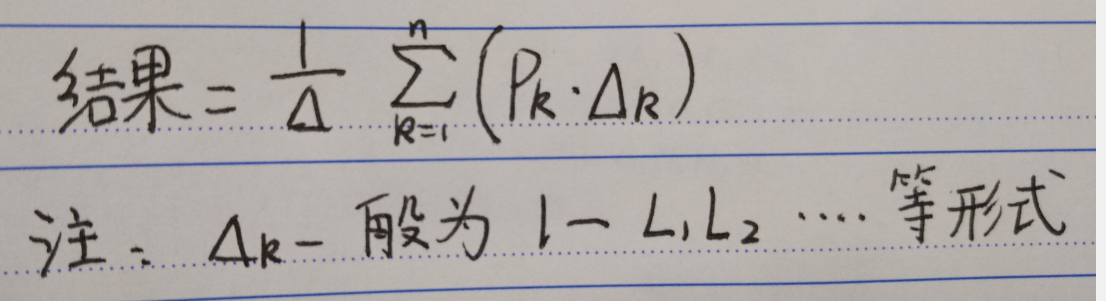 结果 = \frac{1}{Δ} \sum_{k=1}^{n} (P_k · Δ_k)
注: Δ_k 一般为 1 - L_1 L_2 ···· 等形式